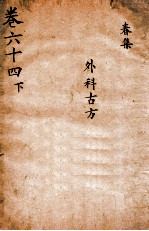 春集
外科古方
卷六十四下